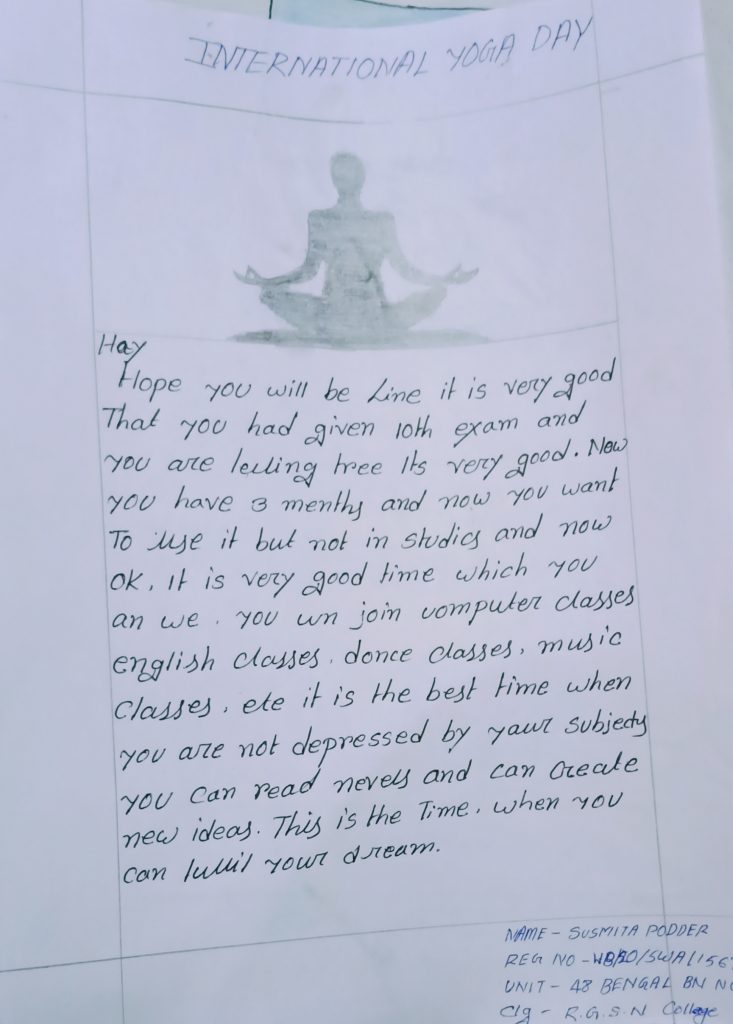 INTERNATIONAL YOGA DAY
Hay
Hope you will be Line it is very good
That you had given 10th exam and
you are leeling tree Its very good. Now
you have 3 menths and now you want
To use it but not in studies and now
OK, It is very good time which you
an we. you un join vomputer classes
english classes, donce classes, music
classes, ete it is the best time when
you are not depressed by your subjects
you can read nevels and can create
new ideas. This is the Time, when you
can your dream.
NAME - SUSMITA PODDER
REG NO -
UNIT - 48 BENGAL BN
Clg - R.G.S.N College